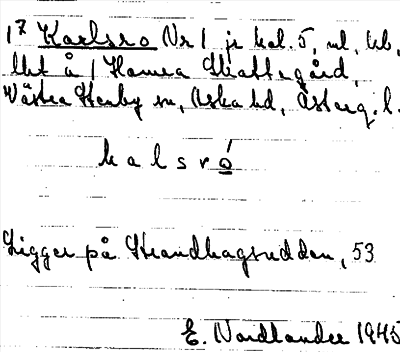 17 Karlsro Nr 1 je kol. 5, ml, kb,
lht å 1 Hamra Skattegård,
Västra Stenby sn, Aska hd, Österg. l.
kalsró̲
Ligger på Strandhagsudden, 53
E. Nordlander 1945